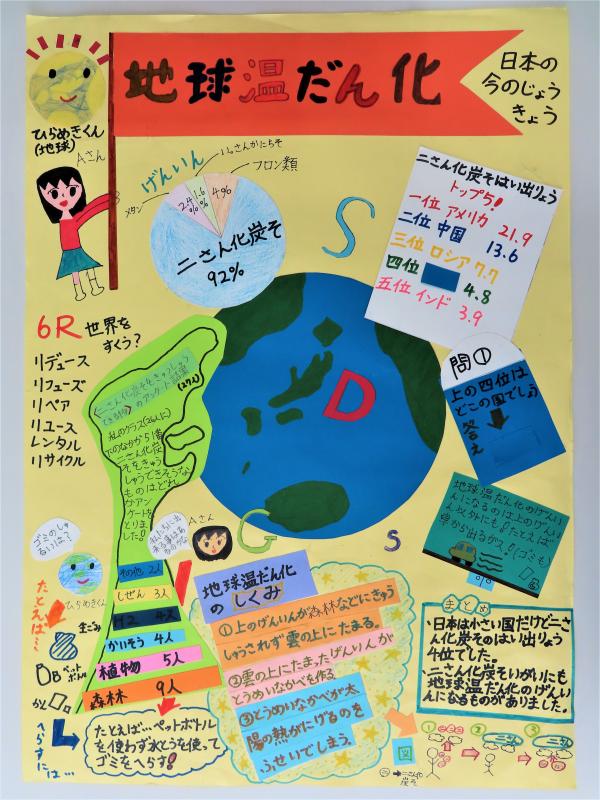 地球温だん化
日本の
今のじょう
きょう
ひらめきくん
(地球)
Aさん
げんいん
フロン類
メタン
2.4
%
1.6
%
4%
二さん化炭そ
92%
S
二さん化炭そはい出りょう
トップ5!
一位 アメリカ 21.9
二位 中国 13.6
三位 ロシア 7.7
四位 4.8
五位 インド 3.9
6R 世界を
すくう?
リデュース
リフューズ
リペア
リユース
レンタル
リサイクル
D
問①
上の四位は
どこの国でしょう
答え
私のクラス(26人)に
下のなかから1番
二さん化炭
そをきゅう
しゅうできそうな
ものはどれ
かアン
ケートを
とりま
した。
地球温だん化のげんい
んになるのは上のげんい
ん以外にも
車から出るガス
ゴミのしゅ
るいは?
ひらめきくん
Aさん
G
s
たとえば…
生ごみ
ペット
ボトル
かん
へらすには…
その他 2人
しぜん 3人
H2 4人
かいそう 4人
植物 5人
森林 9人
たとえば…ペットボトル
を使わず水とうを使って
ゴミをへらす!
地球温だん化
のしくみ
①上のげんいんが森林などにきゅう
しゅうされず雲の上にたまる。
②雲の上にたまったげんいんが
とうめいなかべを作る。
③とうめいなかべが太
陽の熱がにげるのを
ふせいでしまう。
まとめ
・日本は小さい国だけど二さ
ん化炭そのはい出りょう
4位でした。
・二さん化炭そいがいにも
地球温だん化のげんい
んになるものがありました。
図
① ② ③